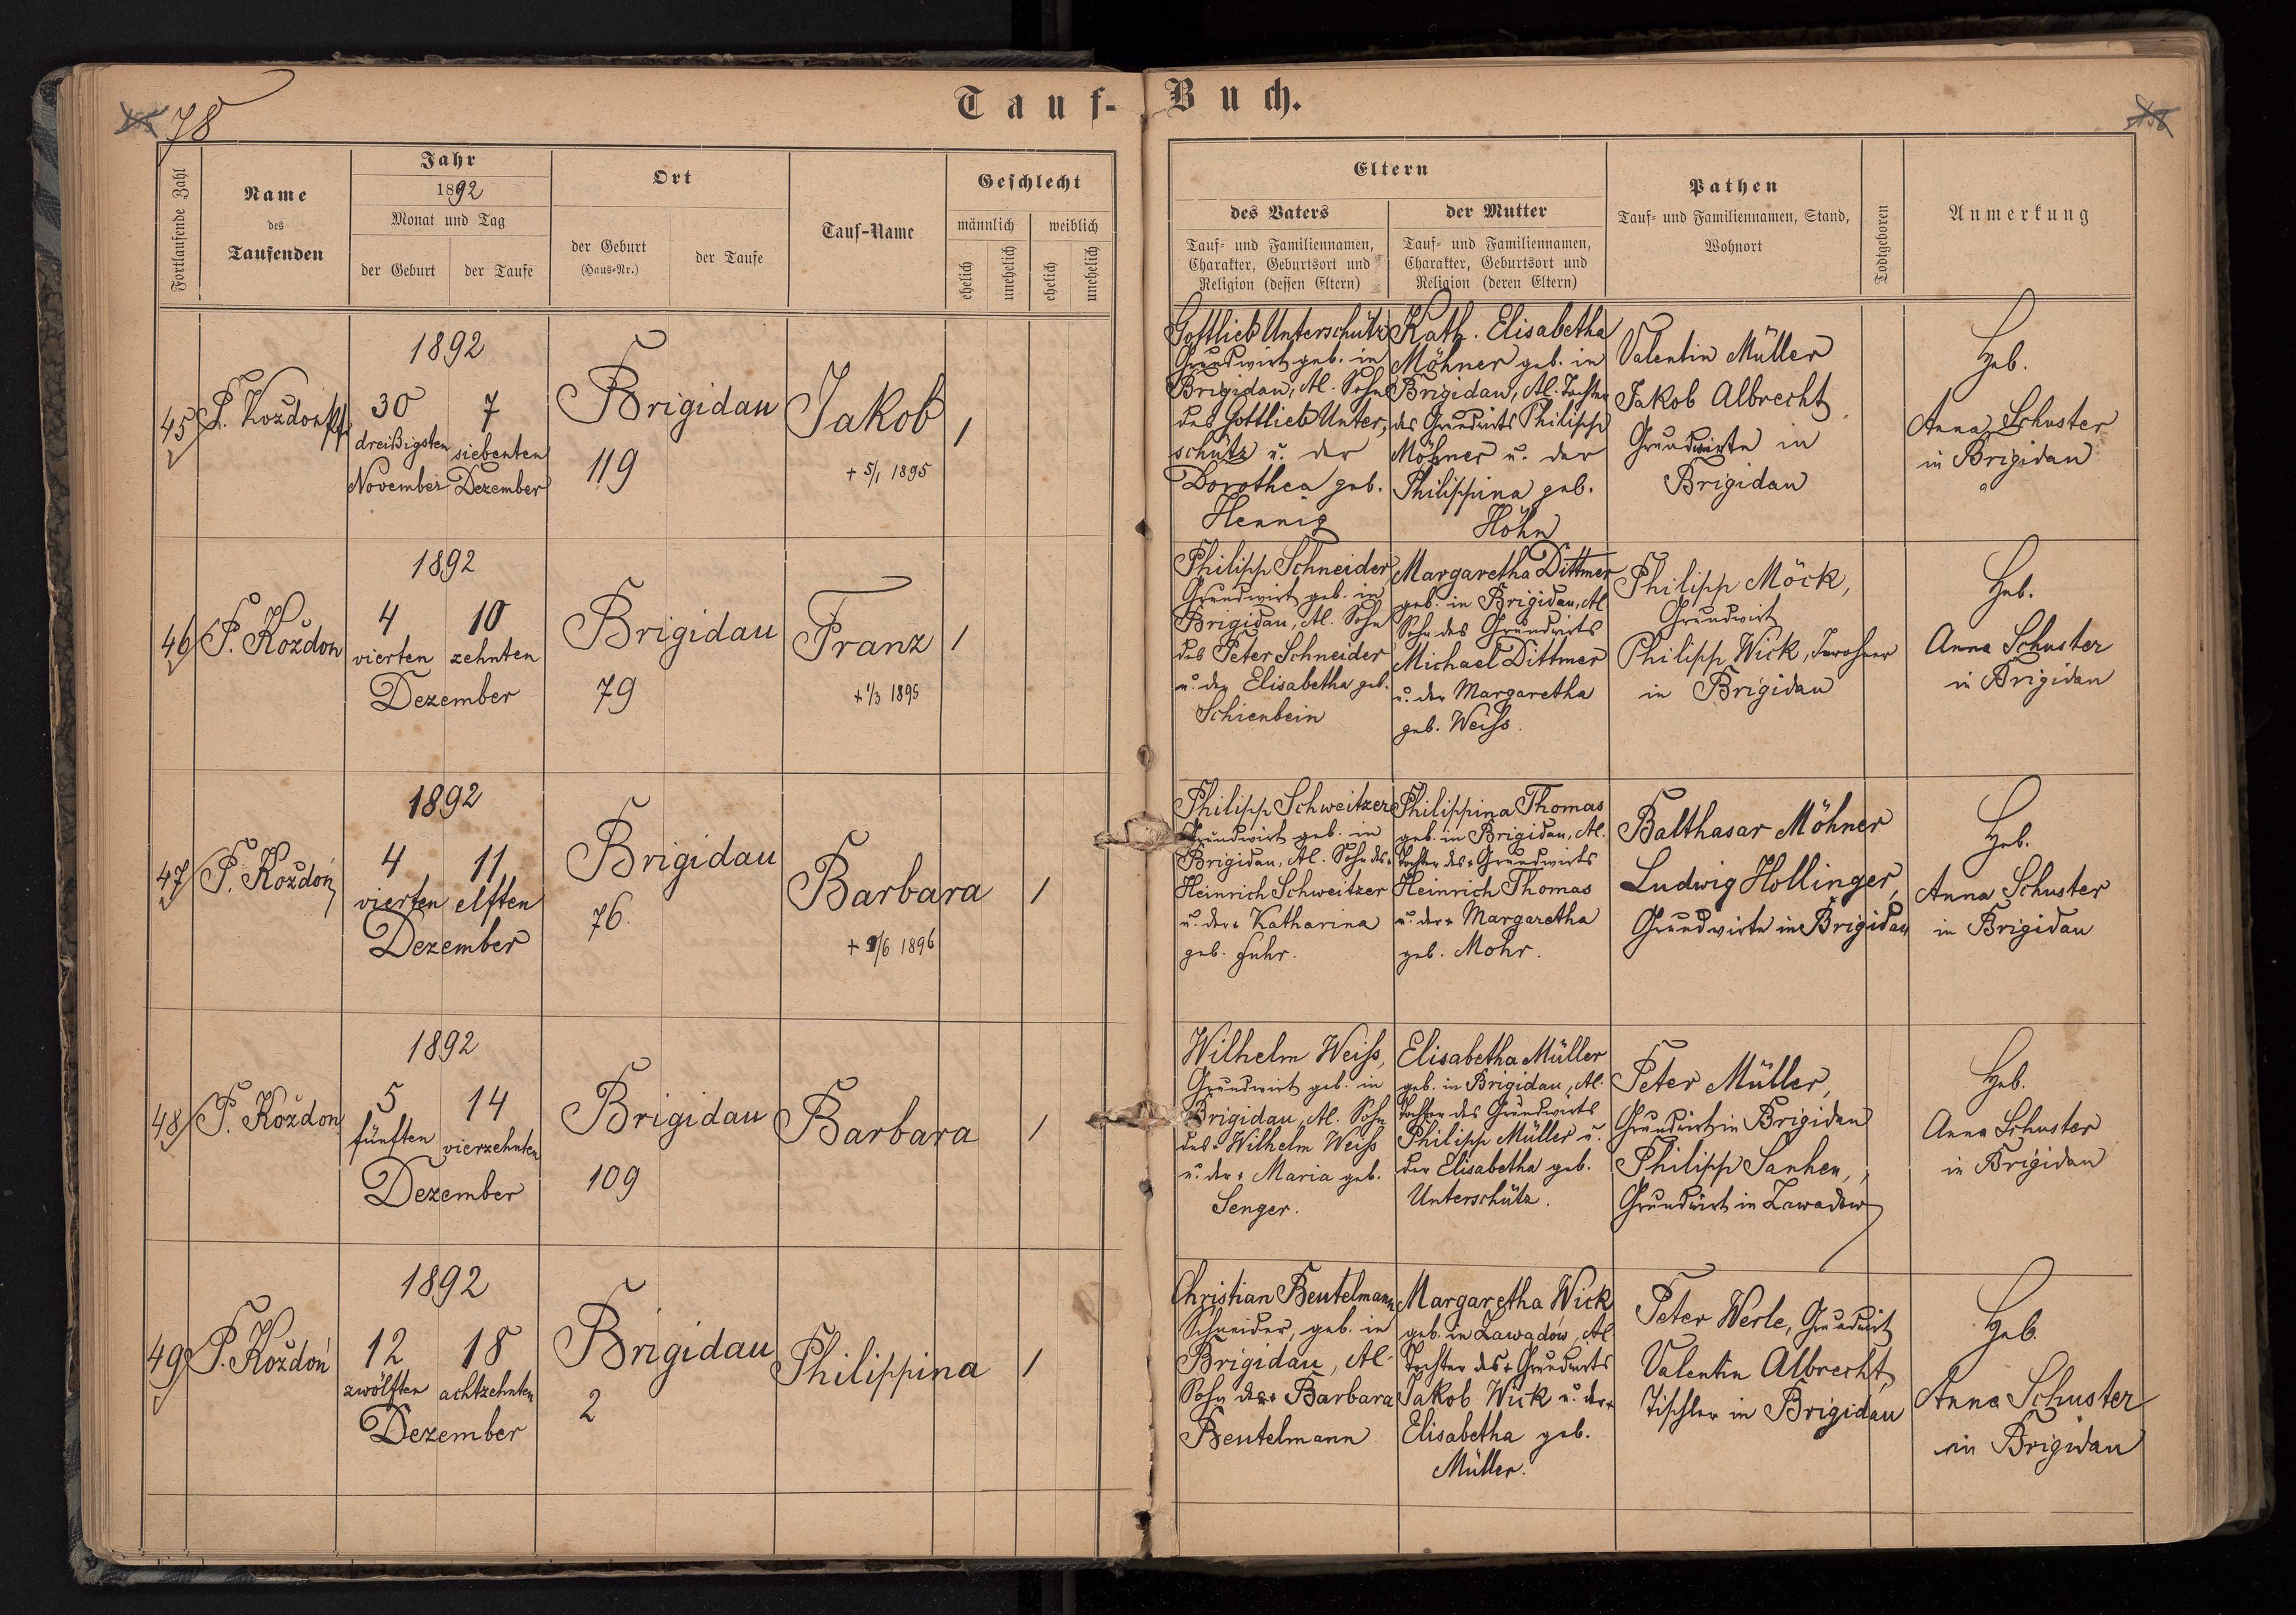 78
Tauf- Buch.
Fortlaufende Zahl
Name
des
Taufenden
Jahr
1892
Monat und Tag
der Geburt
der Taufe
Ort
der Geburt
(Haus-Nr.)
der Taufe
Tauf-Name
Geschlecht
männlich
weiblich
ehelich
unehelich
ehelich
unehelich
Eltern
des Vaters
Tauf- und Familiennamen,
Charakter, Geburtsort und
Religion (dessen Eltern)
der Mutter
Tauf- und Familiennamen,
Charakter, Geburtsort und
Religion (deren Eltern)
Pathen
Tauf- und Familiennamen, Stand,
Wohnort
Todtgeboren
Anmerkung
45
P. Kozdon
1892
30
dreißigsten
November
7
siebenten
Dezember
Brigidau
119
Jakob
+ 5/1 1895
1
Gottlieb Unterschütz
Grundwirt geb. in
Brigidau, Al. Sohn
des Gottlieb Unter-
schütz u. der
Dorothea geb.
Hennig
Kath. Elisabetha
Möhner geb. in
Brigidau, Al. Tochter
des Grundwirts Philipp
Möhner u. der
Philippina geb.
Höhn
Valentin Müller
Jakob Albrecht
Grundwirte in
Brigidau
Heb.
Anna Schuster
in Brigidau
46
P. Koždon
1892
4
vierten
10
zehnten
Dezember
Brigidau
79
Franz
+ 1/3 1895
1
Philipp Schneider
Grundwirt geb. in
Brigidau, Al. Sohn
des Peter Schneider
u. der Elisabetha geb.
Schienbein
Margaretha Dittmer
geb. in Brigidau, Al.
Sohn des Grundwirts
Michael Dittmer
u. der Margaretha
geb. Weiss.
Philipp Möck,
Grundwirt
Philipp Wick, Inwohner
in Brigidau
Heb.
Anna Schuster
in Brigidau
47
P. Koždoń
1892
4
vierten
11
elften
Dezember
Brigidau
76.
Barbara
/6 1896
1
Philipp Schweitzer
Grundwirt geb. in
Brigidau, Al. Sohn des
Heinrich Schweitzer
u. der Katharina
geb. Fuhr.
Philippina Thomas
geb. in Brigidau, Al.
Tochter des Grundwirts
Heinrich Thomas
u. der Margaretha
geb. Mohr.
Balthasar Möhner
Ludwig Hollinger,
Grundwirte in Brigidau
Heb.
Anna Schuster
in Brigidau
48
P. Koždon
1892
5
fünften
14
vierzehnten
Dezember
Brigidau
109
Barbara
1
Wilhelm Weiss,
Grundwirt geb. in
Brigidau, Al. Sohn
des Wilhelm Weiss
u. der Maria geb.
Senger.
Elisabetha Müller
geb. in Brigidau, Al.
Tochter des Grundwirts
Philipp Müller u.
der Elisabetha geb.
Unterschütz.
Peter Müller,
Grundwirt in Brigidau
Philipp Manhen,
Grundwirt in Zawadow
Heb.
Anna Schuster
in Brigidau
49
P. Koždoń
1892
12
zwölften
18
achtzehnten
Dezember
Brigidau
2
Philippina
1
Christian Beutelmann
Schneider, geb. in
Brigidau, Al.
Sohn der Barbara
Beutelmann
Margaretha Wick
geb. in Zawadów, Al.
Tochter des Grundwirts
Jakob Wick u. der
Elisabetha geb.
Müller.
Peter Werle, Grundwirt
Valentin Albrecht,
Tischler in Brigidau
Heb.
Anna Schuster
in Brigidau